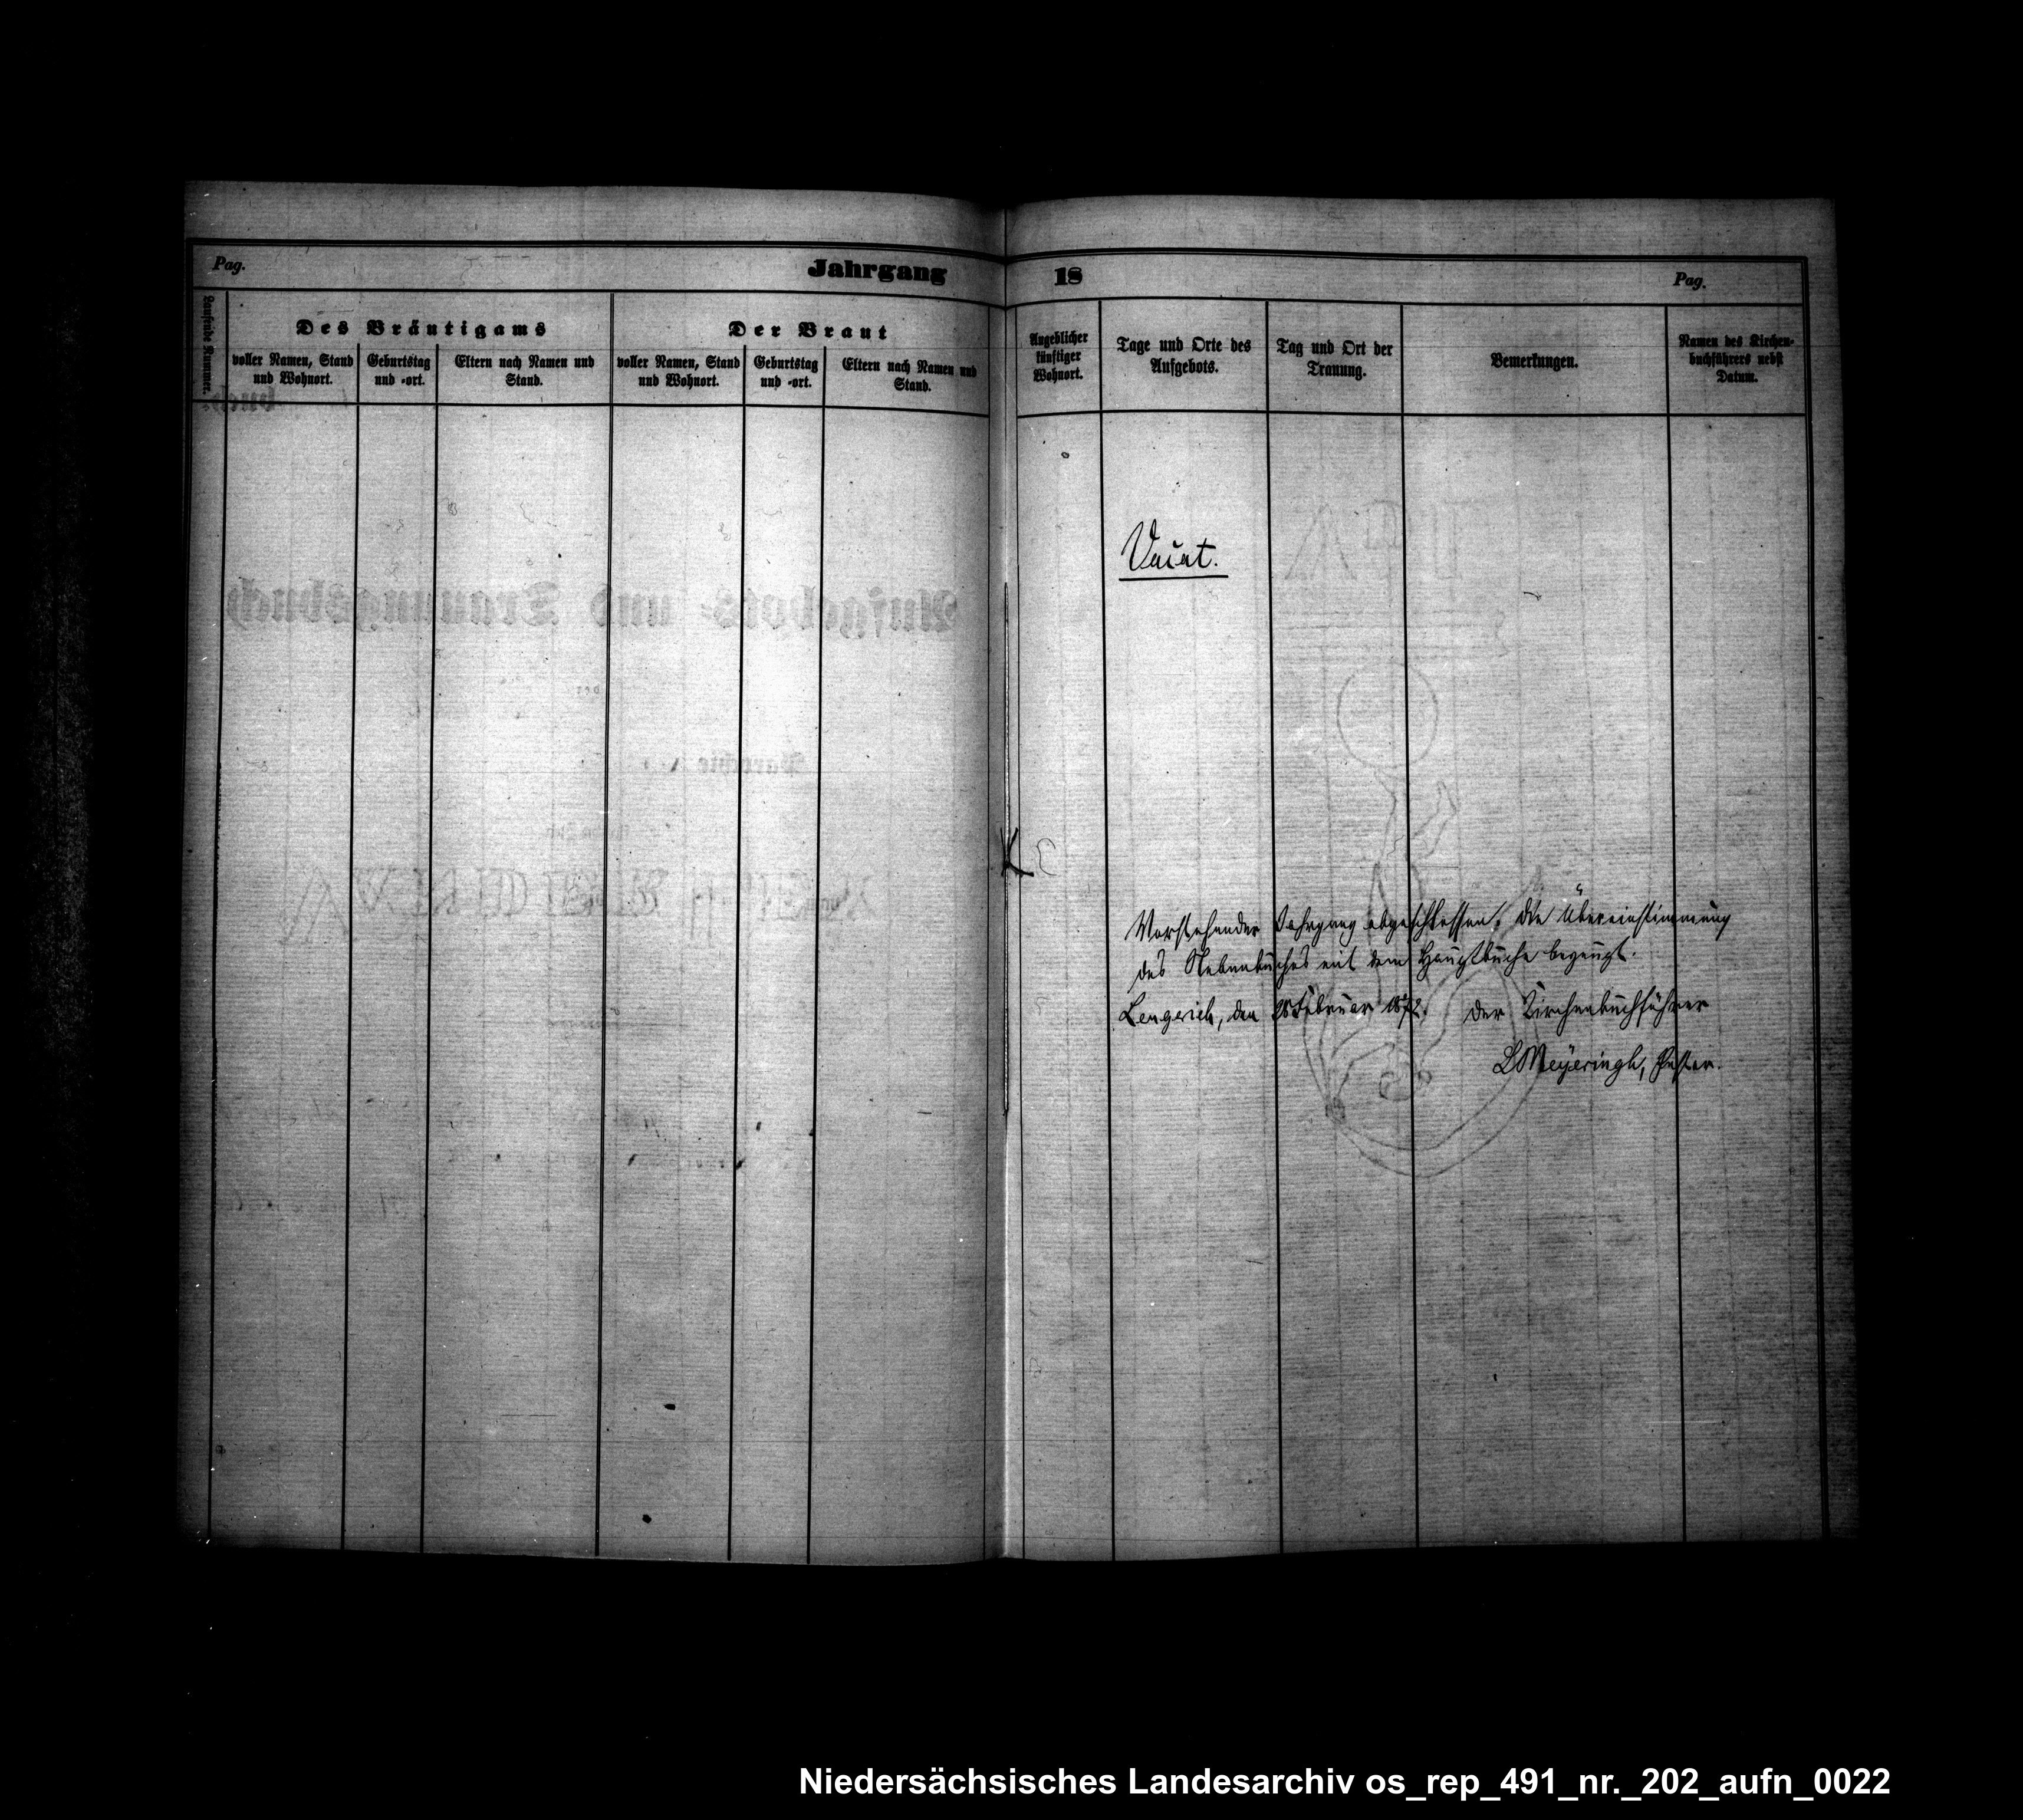 Pag.
Jahrgang 18
Pag.
Laufende Nummer.
Des Bräutigams
Der Braut
voller Namen, Stand
und Wohnort.
Geburtstag
und -ort.
Eltern nach Namen und
Stand.
voller Namen, Stand
und Wohnort.
Geburtstag
und -ort.
Eltern nach Namen und
Stand.
Angeblicher
künftiger
Wohnort.
Tage und Orte des
Aufgebots.
Tag und Ort der
Trauung.
Bemerkungen.
Namen des Kirchen-
buchführers nebst
Datum.
Vacat.
Vorstehender Jahrgang abgeschlossen. Die Übereinstimmung
des Nebenbuches mit dem Hauptbuche bezeugt.
Lengerich, den Februar 1872. Der Kirchenbuchführer
LMeyeringh, Pastor.
Aufgebots- und Trauungsbuch
der
Parochie
Niedersächsisches Landesarchiv os_rep_491_nr._202_aufn_0022